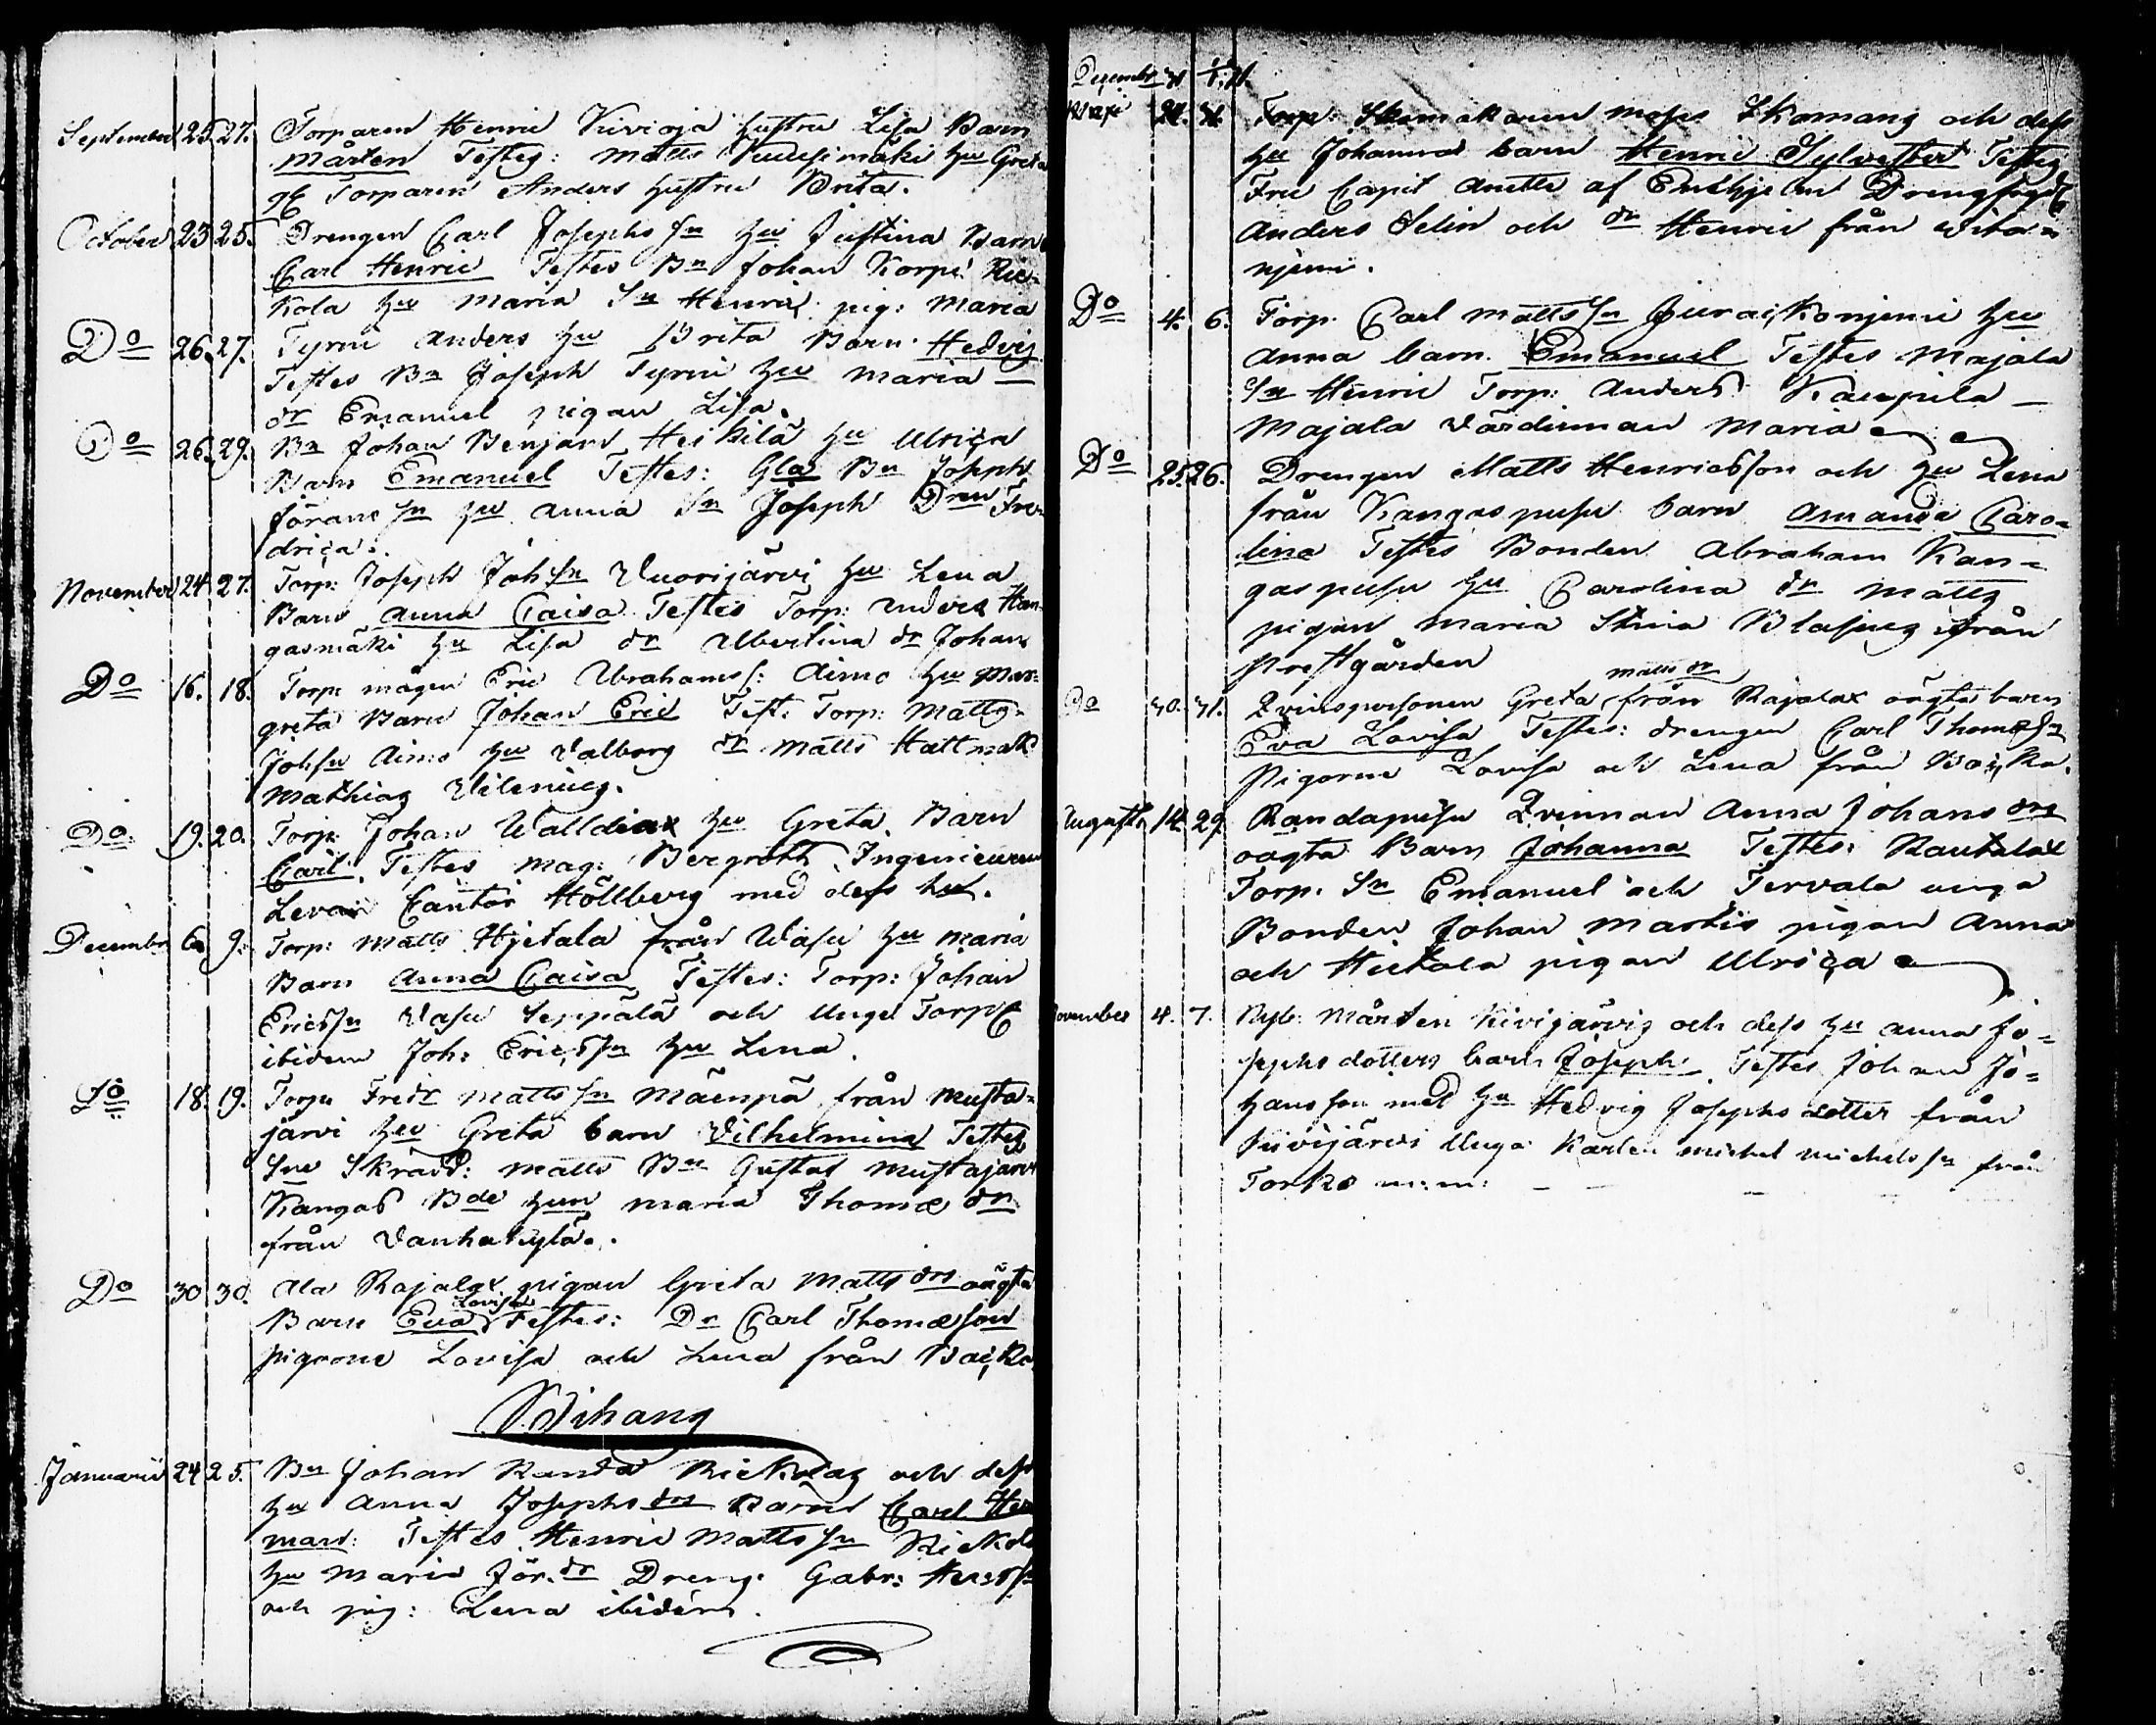 September 25. 27. Torparen Henric Kivioja hustru Lisa Barn
Mårten Testeg: Matts Kuusimäki hu Greta
Torparen Anders hustru Brita.
October 23 25. Drengen Carl Josephs Sn hu Justina Barn
Carl Henric Testes Bn Johan Korpi Rie-
kola hu Maria Sn Henric pig: Maria
Do 26. 27. Tyrni Anders hu Brita Barn Hedvig
Testes Bn Joseph Tyrni hu Maria —
dr Emanuel pigan Lisa.
Do 26. 29. Bn Johan Benjam Heikilä hu Ulrica
Barn Emanuel Testes: Gla Bn Joseph
Jörans Sn hu Anna Sn Joseph Fre-
drica.
November 24 27. Torp: Joseph Joh Sn Vuorijärvi hu Lena
Barn Anna Caisa Testes Torp: Anders Kan-
gasmäki hu Lisa dr Albertina dr Johan
Do 16. 18. Torp: mågen Eric Abrahams s: Aimo hu Mar-
greta Barn Johan Eric Test: Torp: Matts
Joh Sn Aimo hu Valborg dr Matts Hattmak
Mathias Vilenius.
Do 19. 20. Torp: Johan Walldian hu Greta. Barn
Carl. Testes Mag: Bergroth Ingenieuren
Levon Cantor Höllberg med dess hu.
Decembr 6. 9. Torp: Matts Hjetala från Wasu hu Maria
Barn Anna Caisa Testes: Torp: Johan
Erics Sn Vasu Seppälä och Unge Torp
ibidem Joh: Erics Sn hu Lena.
Do 18. 19. Torp: Fredr Matts Sn Mäenpä från Musta-
järvi hu Greta barn Vilhelmina Testes
Sne Skrädd: Matts Bn Gustaf Mustajärvi
Kangas Bde hun Maria Thomæ dr
från Vanhakylä.
Do 30 30. Ala Rajalax pigan Greta Matts drs oägta
Lovisa
Barn Eva Testes: Dr Carl Thomæson
pigorne Lovisa och Lena från Baiko
Bihang
Januarii 24 25. Bn Johan Randa Riekolas och dess
hu Anna Josephs drs Barn Carl Her
man: Testes Henric Matts Sn Riekola
hu Maria Jör. dr Dreng: Gabr:
och pig: Lena ibidem.
December 31
24. Torp: Skomakaren Moses Skomang och dess
hu Johanna barn Henric Sylvester Testes
Fru Capit Anette af Enehjelm Drengfogd
Anders Selin och dr Henric från Wita-
njemi.
Do 4. 6. Torp. Carl Matts Sn hu
Anna barn. Emanuel Testes Majala
Sn Henric Torp: Anders Kaupila —
Majala Värdinnan Maria
Do 25. 26. Drengen Matts Henricsson och hu Lena
från Kangaspusu barn Amanda Caro-
lina Testes Bonden Abraham Kan-
gaspusu hu Carolina dr Matts
pigan Maria Stina Blasius från
Prestgården
Matts dr
Do 30. 31. Qvinspersonen Greta från Rajalax oägta barn
Eva Lovisa Testes: drengen Carl Thomæ Sn
Pigorne Lovisa och Lena från Baiko.
Augusti 14. 29. Randapusu Qvinnan Anna Johans drs
oägta Barn Johanna Testes: Rautalax
Torp. Sn Emanuel och Tervala unga
Bonden Johan Martis pigan Anna
och Hietala pigan Ulrica
November 4. 7. Nyb: Mårten Kivijärvis och dess hu Anna Jo-
sephs dotters barn Joseph Testes Johan Jo-
hansson med hu Hedvig Josephs dotter från
Kivijärvi Unga Karlen Michel Michels Sn från
Torko m: m: